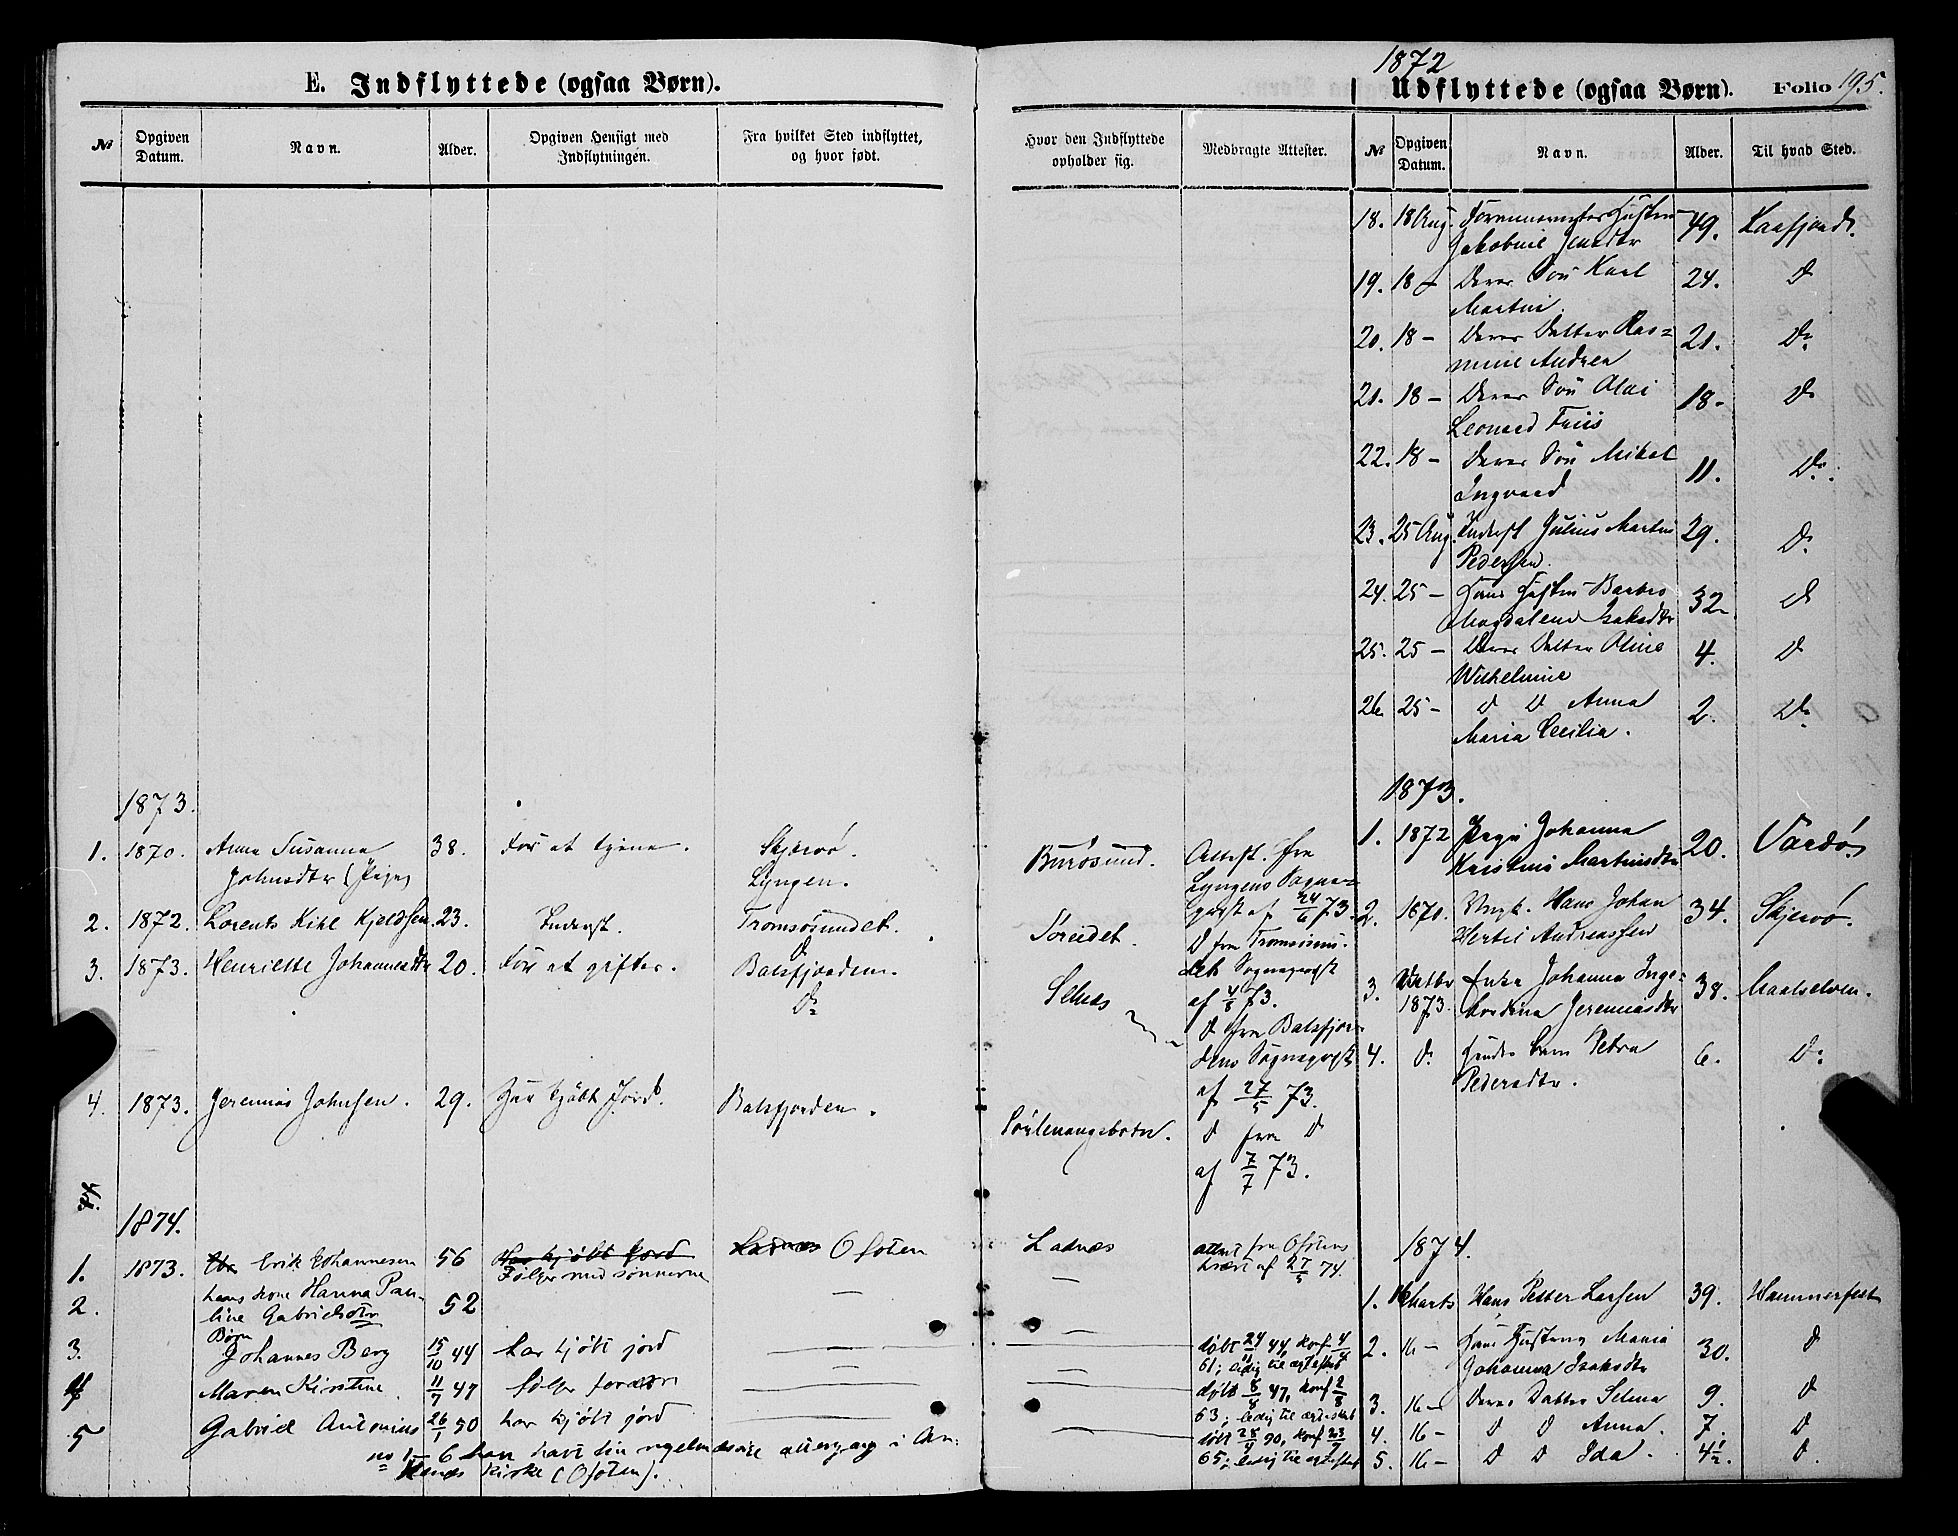 E. Indflyttede (ogsaa Børn).
№ Opgiven Datum. Navn. Alder. Opgiven Hensigt med Indflytningen. Fra hvilket Sted indflyttet, og hvor født.
1873.
1. 1870. Anna Susanna 38. For at tjene. Skjervø.
Johnsdtr (Pige) Lyngen.
2. 1872. Lorents Kihl Kjeldsen 23. Inderst. Tromsøsundet.
D
3. 1873. Henriette Johannesdtr 20. For at giftes. Balsfjorden.
Do
4. 1873. Jeremias Johnsen. 29. Har kjøbt Jord. Balsfjorden.
1874.
1. 1873. Erik Johannesen 56 Har kjøbt jord Ladnæs Ofoten
Følger med sønnerne
2. hans kone Hanna Pau-
line Gabrielsdtr 52 —
Børn
3. Johannes Berg 15/10 44 har kjøbt jord —
4 Maren Kirstine 11/7 47 følger forældre —
5 Gabriel Antonius 26/1 50 har kjøbt jord —
no 1–6 har havt sin regelmæssige altergang i An-
kenæs kirke (Ofoten).
1872
Udflyttede (ogsaa Børn). Folio 195.
Hvor den Indflyttede opholder sig. Medbragte Attester. № Opgiven Datum. Navn. Alder. Til hvad Sted.
18. 18 Aug. Forannævntes Hustru 49. Kaafjord.
Jakobine Jensdtr
19. 18 – Deres Søn Karl 24. D
Martin
20. 18 – Deres Datter Ras= 21. Do
mine Andrea
21. 18 – Deres Søn Olai 18. Do
Leonard Friis
22. 18 – Deres Søn Mikal 11. Do
Ingvard
23. 25 Aug. Inderst Julius Martin 29. Do
Pedersen.
24. 25 – Hans Hustru Barbro 32 D
Magdalena Isaksdtr
25. 25 – Deres Datter Oline 4. D
Wilhelmine
26. 25 – D D Anna 2. Do
Maria Cecilia.
1873.
Burøsund. Attest. fra
Lyngens Sogne=
præst af 24/6 73.
1. 1872 Pige Johanna 20. Vardø
Kristine Martinsdtr
Søreidet. D fra Tromsøsun-
dets Sognepræst
af 4/8 73.
2. 1870. Ungk. Hans Johan 34. Skjervø.
Hertis Andreassen
Selnæs D fra Balsfjor-
dens Sognepræst
af 27/5 73.
3. Oktbr 1873. Enke Johanna Inge= 38. Maalselven.
bordina Jeremiasdtr
4. D. Hendes barn Petra 6. Do
Pedersdtr.
Sørlenangsbotn. D fra D
af 7/7 73.
1874.
Ladnæs attest fra Ofotens
af 27/5 74.
1. 16 Marts Hans Petter Larsen 39. Hammerfest
— døbt 24/11 44, konf 4/4
61; ledig til ægteskab
2. 16 – Hans Hustru Maria 30. D
Johanna Isaksdtr
— døbt 8/8 47, konf 2/8
63; ledig til ægteskab
3. 16 – Deres Datter Selma 9. D
— døbt 28/4 50, konf 23/7
65; ledig til ægteskab
4. 16 – D D Anna. 7. D
5. 16 – D D Ida. 4½. D.